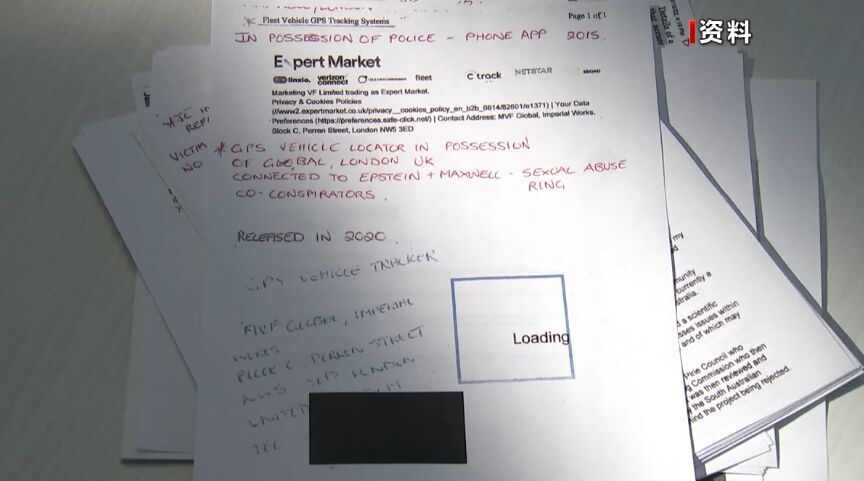 资料
Fleet Vehicle GPS Tracking Systems
Page 1 of 1
IN POSSESSION OF POLICE - PHONE APP 2015.
Expert Market
linxio. verizon connect fleet c track NETSTAR
Marketing VF Limited trading as Expert Market.
Privacy & Cookies Policies
(//www2.expertmarket.co.uk/privacy__cookies_policy_en_b2b_0814/82601/e1371) | Your Data
Preferences (https://preferences.safe-click.net/) | Contact Address: MVF Global, Imperial Works,
Block C, Perren Street, London NW5 3ED
VICTIM
NO
* GPS VEHICLE LOCATOR IN POSSESSION
OF GLOBAL, LONDON UK
CONNECTED TO EPSTEIN + MAXWELL - SEXUAL ABUSE
RING
CO-CONSPIRATORS.
RELEASED IN 2020.
GPS VEHICLE TRACKER
MVF GLOBAL, IMPERIAL
BLOCK C, PERREN STREET
Loading
my
munity
currently a
stralia.
a scientific
sses issues within
and of which may
Pirie Council who
g Commission who then
was then reviewed and
the South Australian
ind the project being rejected.